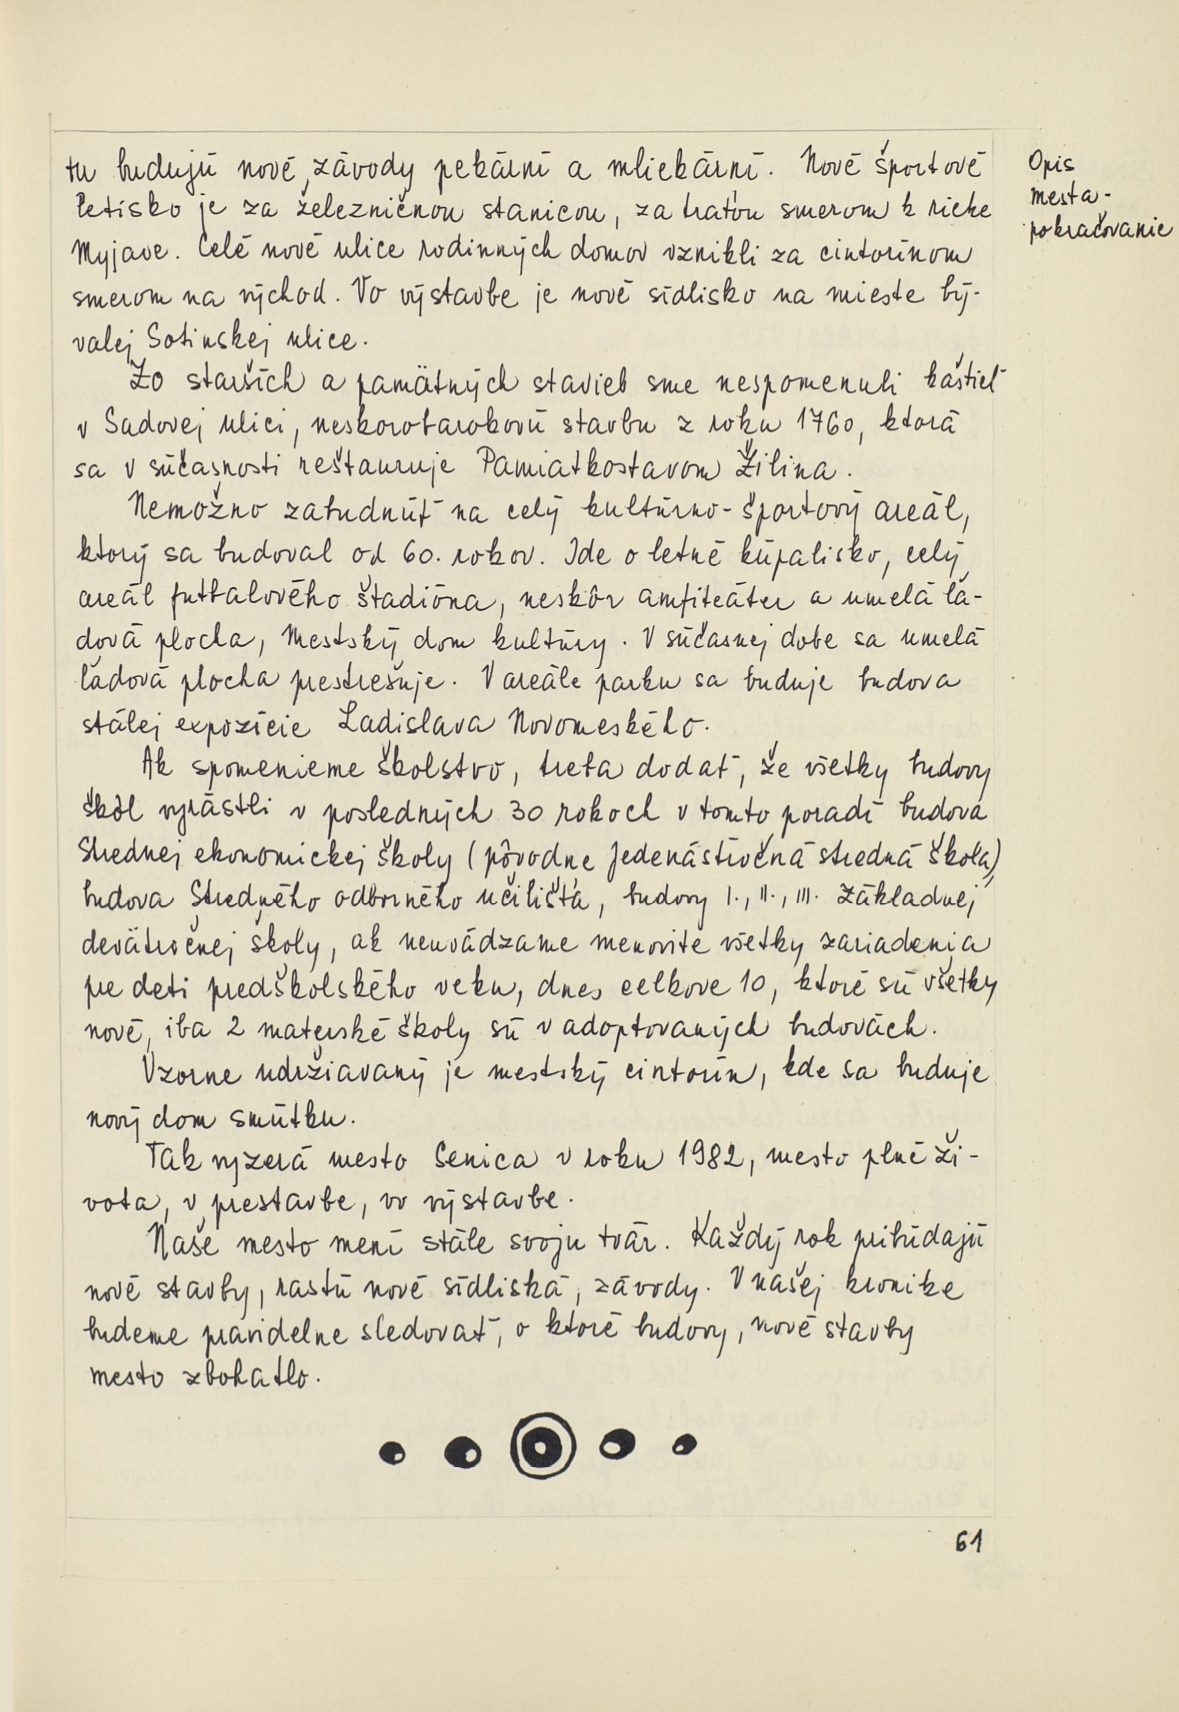 tu budujú nové závody pekární a mliekární. Nové športové
letisko je za železničnou stanicou, za traťou smerom k rieke
Myjave. Celé nové ulice rodinných domov vznikli za cintorínom
smerom na východ. Vo výstavbe je nové sídlisko na mieste bý-
valej Sotinskej ulice.
Zo starších a pamätných stavieb sme nespomenuli kaštieľ
v Sadovej ulici, neskorobarokovú stavbu z roku 1760, ktorá
sa v súčasnosti reštauruje Pamiatkostavom Žilina.
Nemožno zabudnúť na celý kultúrno-športový areál,
ktorý sa budoval od 60. rokov. Ide o letné kúpalisko, celý
areál futbalového štadióna, neskôr amfiteáter a umelá ľa-
dová plocha, Mestský dom kultúry. V súčasnej dobe sa umelá
ľadová plocha prestrešuje. V areále parku sa buduje budova
stálej expozície Ladislava Novomeského.
Ak spomenieme školstvo, treba dodať, že všetky budovy
škôl vyrástli v posledných 30 rokoch v tomto poradí budova
Strednej ekonomickej školy (pôvodne Jedenásťročná stredná škola),
budova Stredného odborného učilišťa, budovy I., II., III. Základnej
deväťročnej školy, ak neuvádzame menovite všetky zariadenia
pre deti predškolského veku, dnes celkove 10, ktoré sú všetky
nové, iba 2 materské školy sú v adoptovaných budovách.
Vzorne udržiavaný je mestský cintorín, kde sa buduje
nový dom smútku.
Tak vyzerá mesto Senica v roku 1982, mesto plné ži-
vota, v prestavbe, vo výstavbe.
Naše mesto mení stále svoju tvár. Každý rok pribúdajú
nové stavby, rastú nové sídliská, závody. V našej kronike
budeme pravidelne sledovať, o ktoré budovy, nové stavby
mesto zbohatlo.
61
Opis
mesta-
pokračovanie